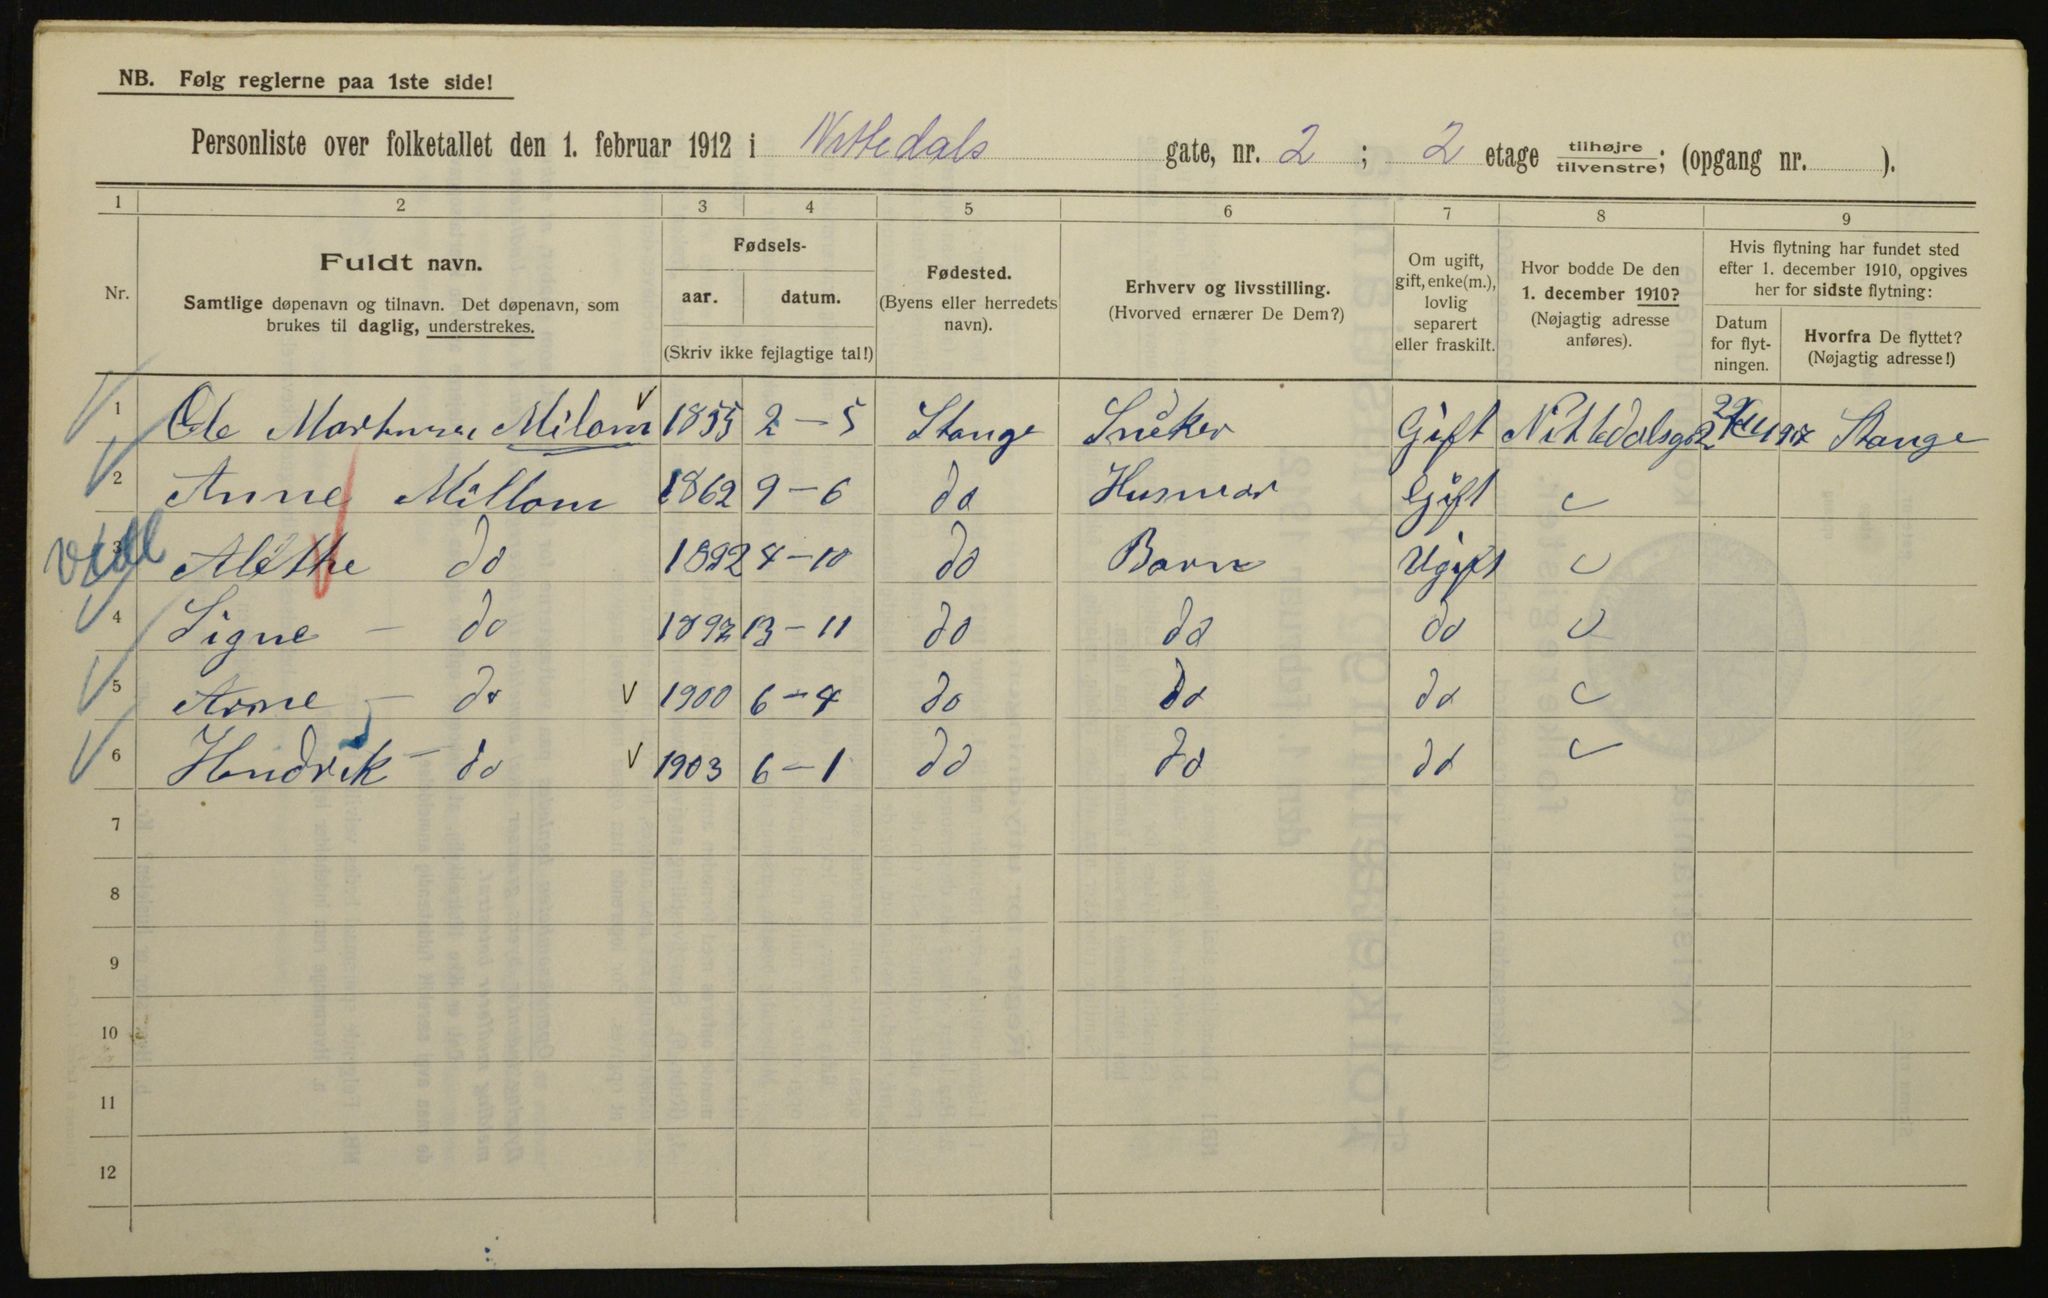 NB. Følg reglerne paa 1ste side!
Personliste over folketallet den 1. februar 1912 i Nittedals gate, nr. 2 ; 2 etage tilhøjre/tilvenstre; (opgang nr. ).
1 2 3 4 5 6 7 8 9
Nr.
Fuldt navn.
Samtlige døpenavn og tilnavn. Det døpenavn, som
brukes til daglig, understrekes.
Fødsels-
aar. datum.
(Skriv ikke fejlagtige tal!)
Fødested.
(Byens eller herredets
navn).
Erhverv og livsstilling.
(Hvorved ernærer De Dem?)
Om ugift,
gift, enke(m.),
lovlig
separert
eller fraskilt.
Hvor bodde De den
1. december 1910?
(Nøjagtig adresse
anføres).
Hvis flytning har fundet sted
efter 1. december 1910, opgives
her for sidste flytning:
Datum
for flyt-
ningen.
Hvorfra De flyttet?
(Nøjagtig adresse!)
1 Ole Milom 1855 2-5 Stange Sneker Gift Nittedalsg 2 Stange
2 Anne Millom 1862 9-6 do Husmor Gift
3 Alethe do 1892 4-10 do Barn Ugift
4 Signe - do 1897 13-11 do do do
5 Arne - do 1900 6-4 do do do
6 Hendrik - do 1903 6-1 do do do
7
8
9
10
11
12